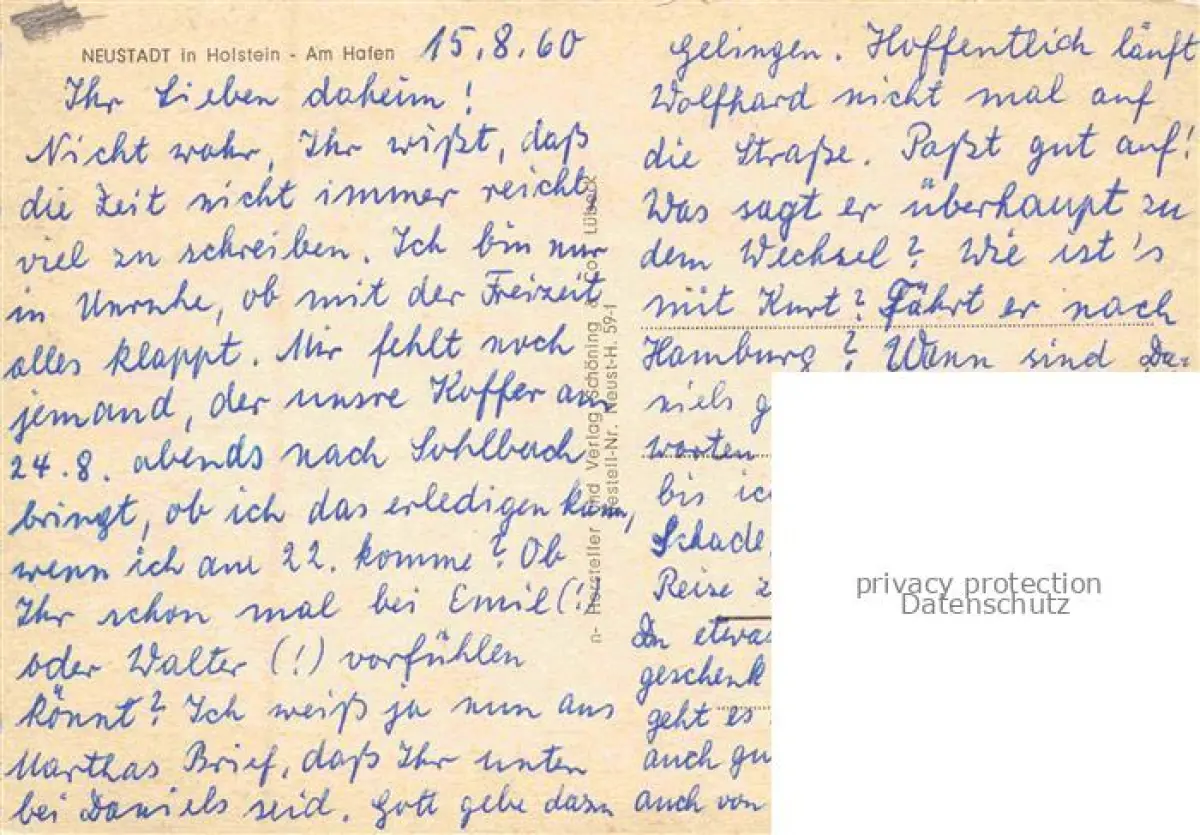 NEUSTADT in Holstein - Am Hafen 15.8.60
Ihr Lieben daheim!
Nicht wahr, Ihr wißt, daß
die Zeit nicht immer reicht,
viel zu schreiben. Ich bin nur
in Unruhe, ob mit der Freizeit
alles klappt. Mir fehlt noch
jemand, der unsre Koffer am
24.8. abends nach Sohlbach
bringt, ob ich das erledigen kann,
wenn ich am 22. komme? Ob
Ihr schon mal bei Emil (!)
oder Walter (!) vorfühlen
könnt? Ich weiß ja nun aus
Marthas Brief, daß Ihr unten
bei Daniels seid. Gott gebe dazu
Gelingen. Hoffentlich läuft
Wolfhard nicht mal auf
die Straße. Paßt gut auf!
Was sagt er überhaupt zu
dem Wechsel? Wie ist's
mit Kurt? Fährt er nach
Hamburg? Wann sind Da-
niels g
warten
bis ic
Schade,
Reise z
Du etwas
geschenk
geht es
auch gu
auch von
Hersteller und Verlag Schöning & Co., Lübeck
Bestell-Nr. Neust-H. 59-1
privacy protection
Datenschutz